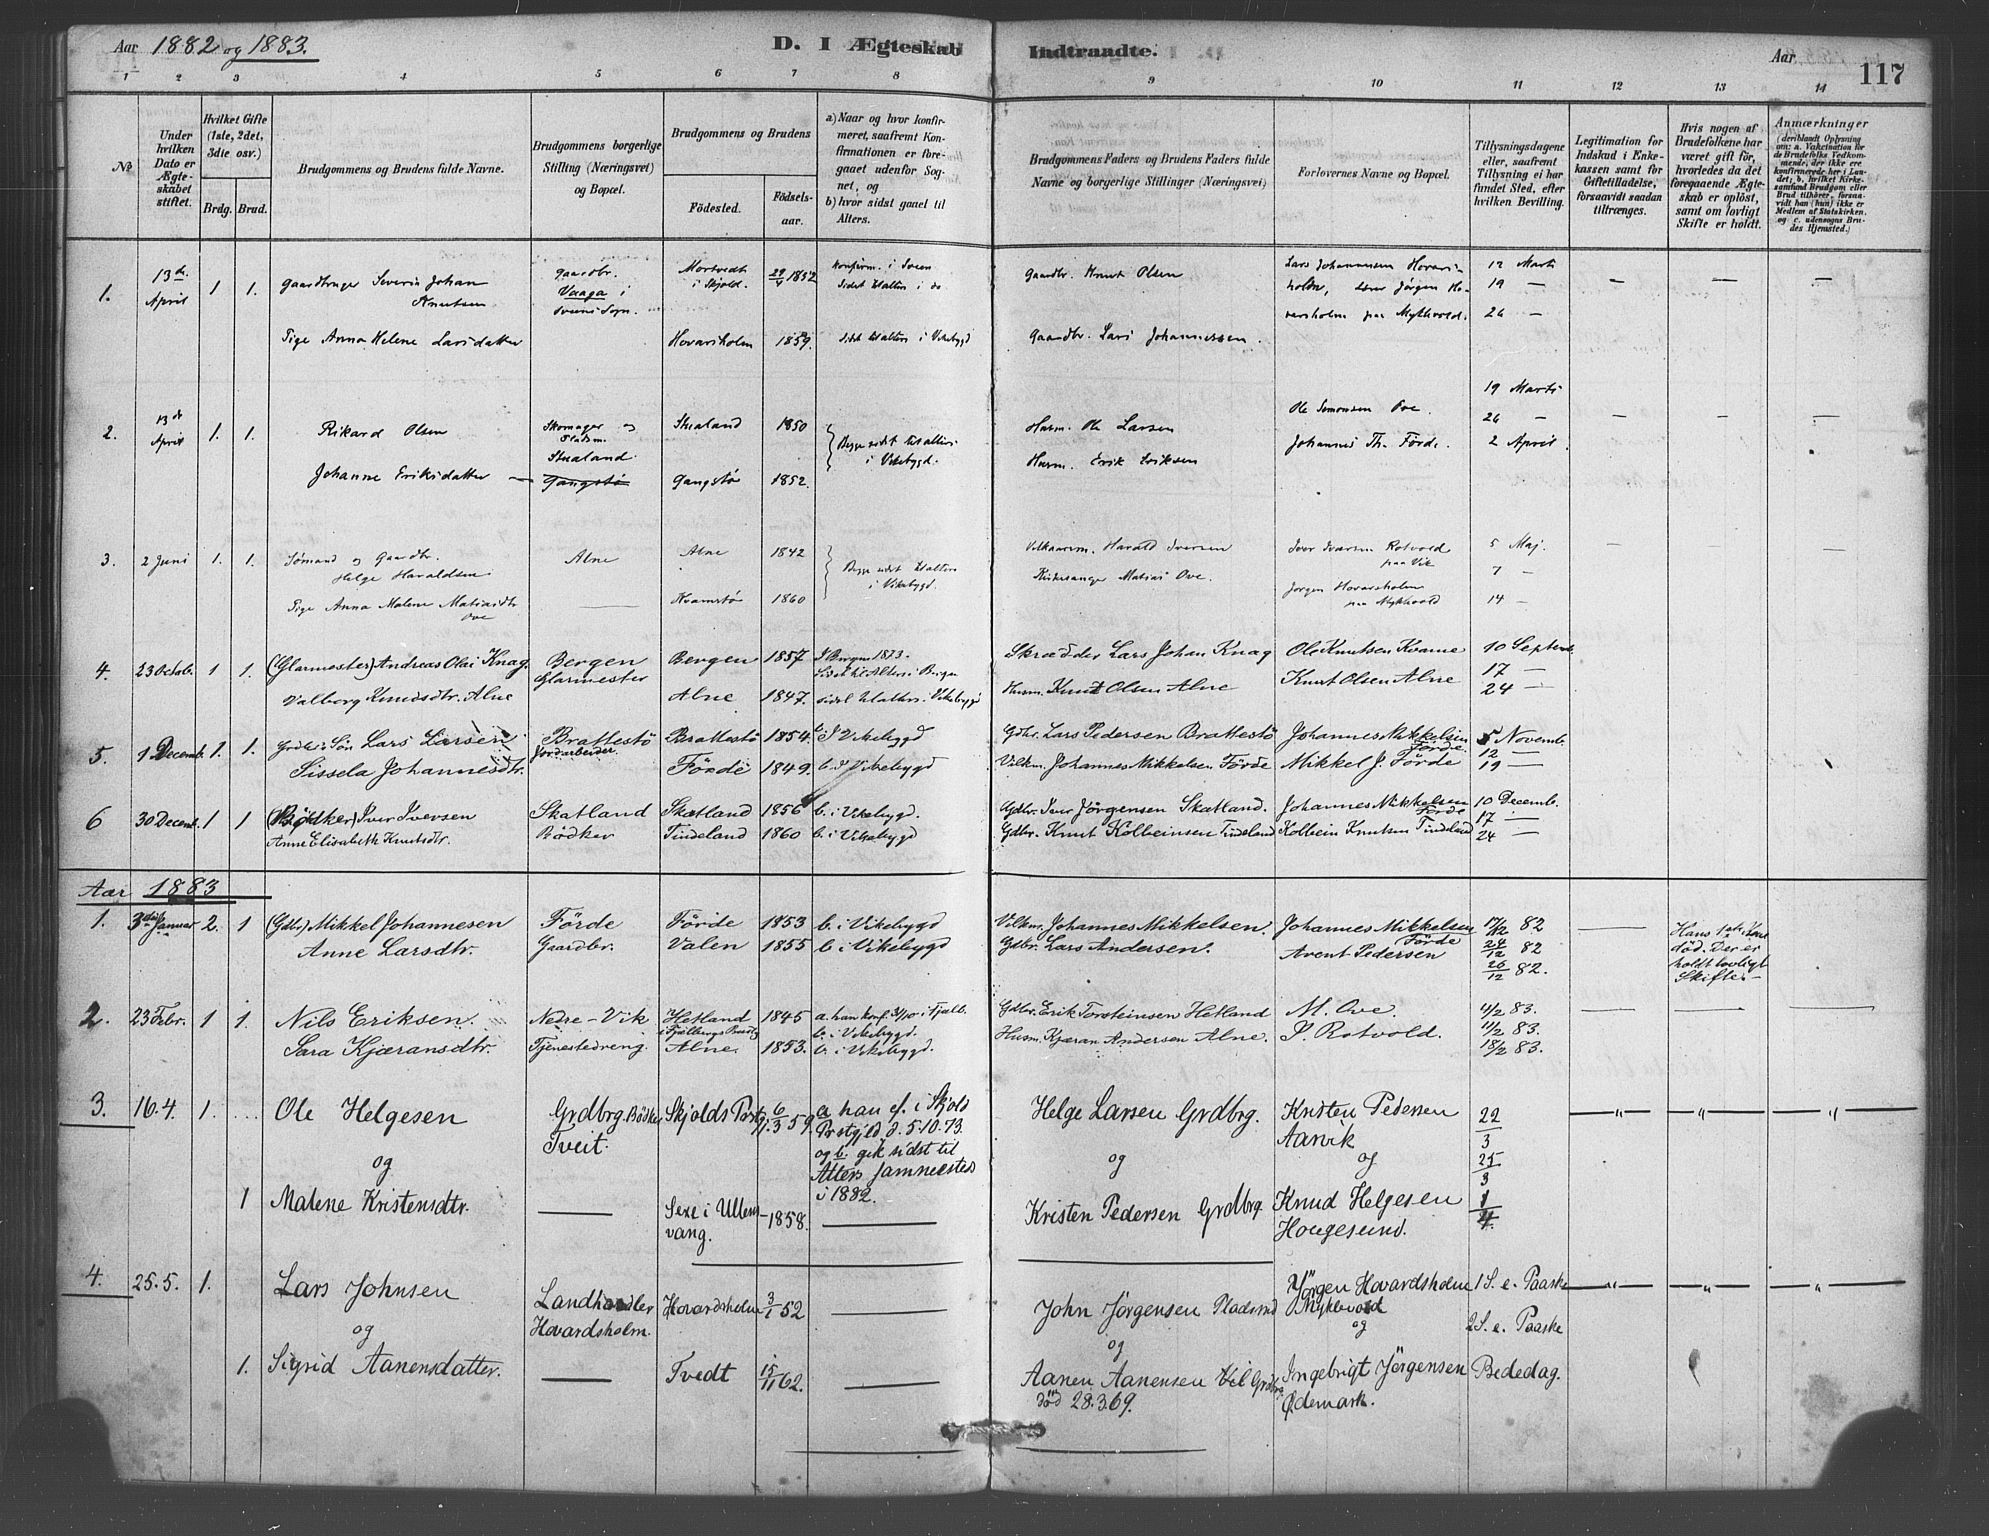 Aar 1882 og 1883. D. I Ægteskab Indtraadte. Aar 117
1 2 3 4 5 6 7 8 9 10 11 12 13 14
No
Under hvilken Dato er Ægteskabet stiftet.
Hvilket Gifte (1ste, 2det, 3die osv.)
Brdg. Brud.
Brudgommens og Brudens fulde Navne.
Brudgommens borgerlige Stilling (Næringsvei) og Bopæl.
Brudgommens og Brudens
Fødested. Fødselsaar.
a) Naar og hvor konfirmeret, saafremt Konfirmationen er foregaaet udenfor Sognet, og
b) hvor sidst gaaet til Alters.
Brudgommens Faders og Brudens Faders fulde Navne og borgerlige Stillinger (Næringsvei)
Forlovernes Navne og Bopæl.
Tillysningsdagene eller, saafremt Tillysning ei har fundet Sted, efter hvilken Bevilling.
Legitimation for Indskud i Enkekassen samt for Giftetilladelse, forsaavidt saadan tiltrænges.
Hvis nogen af Brudefolkene har været gift før, hvorledes da det foregaaende Ægteskab er opløst, samt om lovligt Skifte er holdt.
Anmærkninger
(deriblandt Oplysning om: a. Vakcination for de Brudefolks Vedkommende, der ikke ere konfirmerede her i Landet; b. hvilket Kirkesamfund Brudgom eller Brud tilhører, forsaavidt han (hun) ikke er Medlem af Statskirken, og c. udensogns Brudes Hjemsted.)
1. 13de April 1 1. Gaardbruger Severin Johan Knutsen Gaardbr. Vaaga i Sveens Sogn. Mortvedt i Skjold. 29/4 1852 Konfirm. i Sveen Sidst t. Alters i do Gaardbr. Knut Olsen Lars Johannessen Hovarsholm, Jørgen Hovarsholm paa Mykhvold. 12 Marts 19 — 26 — — — —
Pige Anna Helene Larsdatter Hovarsholm 1859. sidst til alters i Vikebygd Gaardbr. Lars Johannessen.
2. 13de April 1. 1. Rikard Olsen Skomager og Pladsm. Stualand Stualand 1850 Begge sidst til alters i Vikebygd. Husm. Ole Larsen Ole Simonsen Ove. Johannes Th. Förde. 19 Marts 26 — 2 April. — — —
Johanne Eriksdatter — Gangstö Gangstö 1852. Husm. Erik Eriksen
3. 2 Juni 1. 1. Sømand og Gaardbr. Helge Haraldsen Alne Alne 1842 Begge sidst til Alters i Vikebygd Vilkaarsm. Harald Iversen Iver Rotvold paa Vik 5 Maj. 7 — — — —
Pige Anna Malene Matiasdtr Ove — Kvamstö 1860 Kirkesanger Matias Ove. Jørgen Hovarsholm paa Mykhvold 14 —
4. 23 Octob. 1 1. (Glarmester) Andreas Olai Knag. Bergen Glarmester Bergen 1857 I Bergen 1873. Sidst til Alters i Bergen Skrædder Lars Johan Knag Ole Knutsen Kvame 10 Septemb. 17 —
Valborg Knudsdtr. Alne Alne 1847. sidst til alters i Vikebygd Husm. Knut Olsen Alne Knut Olsen Alne 24 —
5. 1 Decemb. 1. 1. Grdbr.s Søn Lars Larsen Brattestö Jordarbeider Brattestö 1854. b. I Vikebygd Gdbr. Lars Pedersen Brattestö Johannes Mikkelsen Förde 5 Novemb. 12 —
Sissela Johannesdtr. Förde 1849. b. I Vikebygd Vilkm. Johannes Mikkelsen Förde Mikkel J. Förde 19 —
6 30 Decemb. 1 1 (Bödker) Iver Iversen Skatland Bödker Skatland 1856 b. i Vikebygd. Gdbr. Iver Jörgensen Skatland. Johannes Mikkelsen Förde 10 Decemb. 17 —
Anne Elisabeth Knutsdtr. Tindeland 1860 b. i Vikebygd Gdbr. Knut Kolbeinsen Tindeland Kolbein Knutsen Tindeland 24 —
Aar 1883
1. 3die Januar 2. 1 (Gdbr) Mikkel Johannesen Förde Gaardbr. Förde 1853 b. i Vikebygd Vilkm. Johannes Mikkelsen. Johannes Mikkelsen Förde 17/12 82 — Hans 1ste Kone død. Der er holdt lovligt Skifte. — —
Anne Larsdtr. Valen 1855 b. i Vikebygd Gdbr. Lars Andersen. Arent Pedersen 24/12 82 26/12 82.
2. 23 Febr. 1 1. Nils Eriksen. Nedre-Vik Tjenestedreng. Hetland i Fjelbergs Prestg 1845 a. han konf. i Fjelb. b. i Vikebygd. Gdbr. Erik Torsteinsen Hetland M. Ove. 4/2 83. 11/2 83. — — —
Sara Kjæransdtr. Alne. 1853. b. i Vikebygd. Husm. Kjæran Andersen Alne. I. Rotvold. 18/2 83.
3. 16.4. 1. ... Ole Helgesen Grdbrg. Bødker Tveit. Skjolds Prstgj. 6/3 59. a. han cf. i Skjold Prstgjld d. 5.10.73. og b. gik sidst til Alters sammesteds i 1882. Helge Larsen Grdbrg. Kristen Pedersen Aarvik 22/3 25/3 — " — " — "
og og og
1 Malene Kristensdtr. — Sexe i Ullensvang. 1858. — Kristen Pedersen Grdbrg. Knud Helgesen Hougesund. 1/4
4. 25.5. 1. Lars Johnsen Landhandler Hovardsholm. Hovardsholm 3/1 52 — John Jørgensen Pladsmd Jørgen Hovardsholm Myklevold 1 S. e. Paaske — " — " — "
og og og 2 S. e. Paaske
1. Sigrid Aanensdatter. — Tvedt 15/11 62. — Aanen Aanensen Grdbrg død 28.3.69. Ingebrigt Jørgensen Ødemark. Bededag.